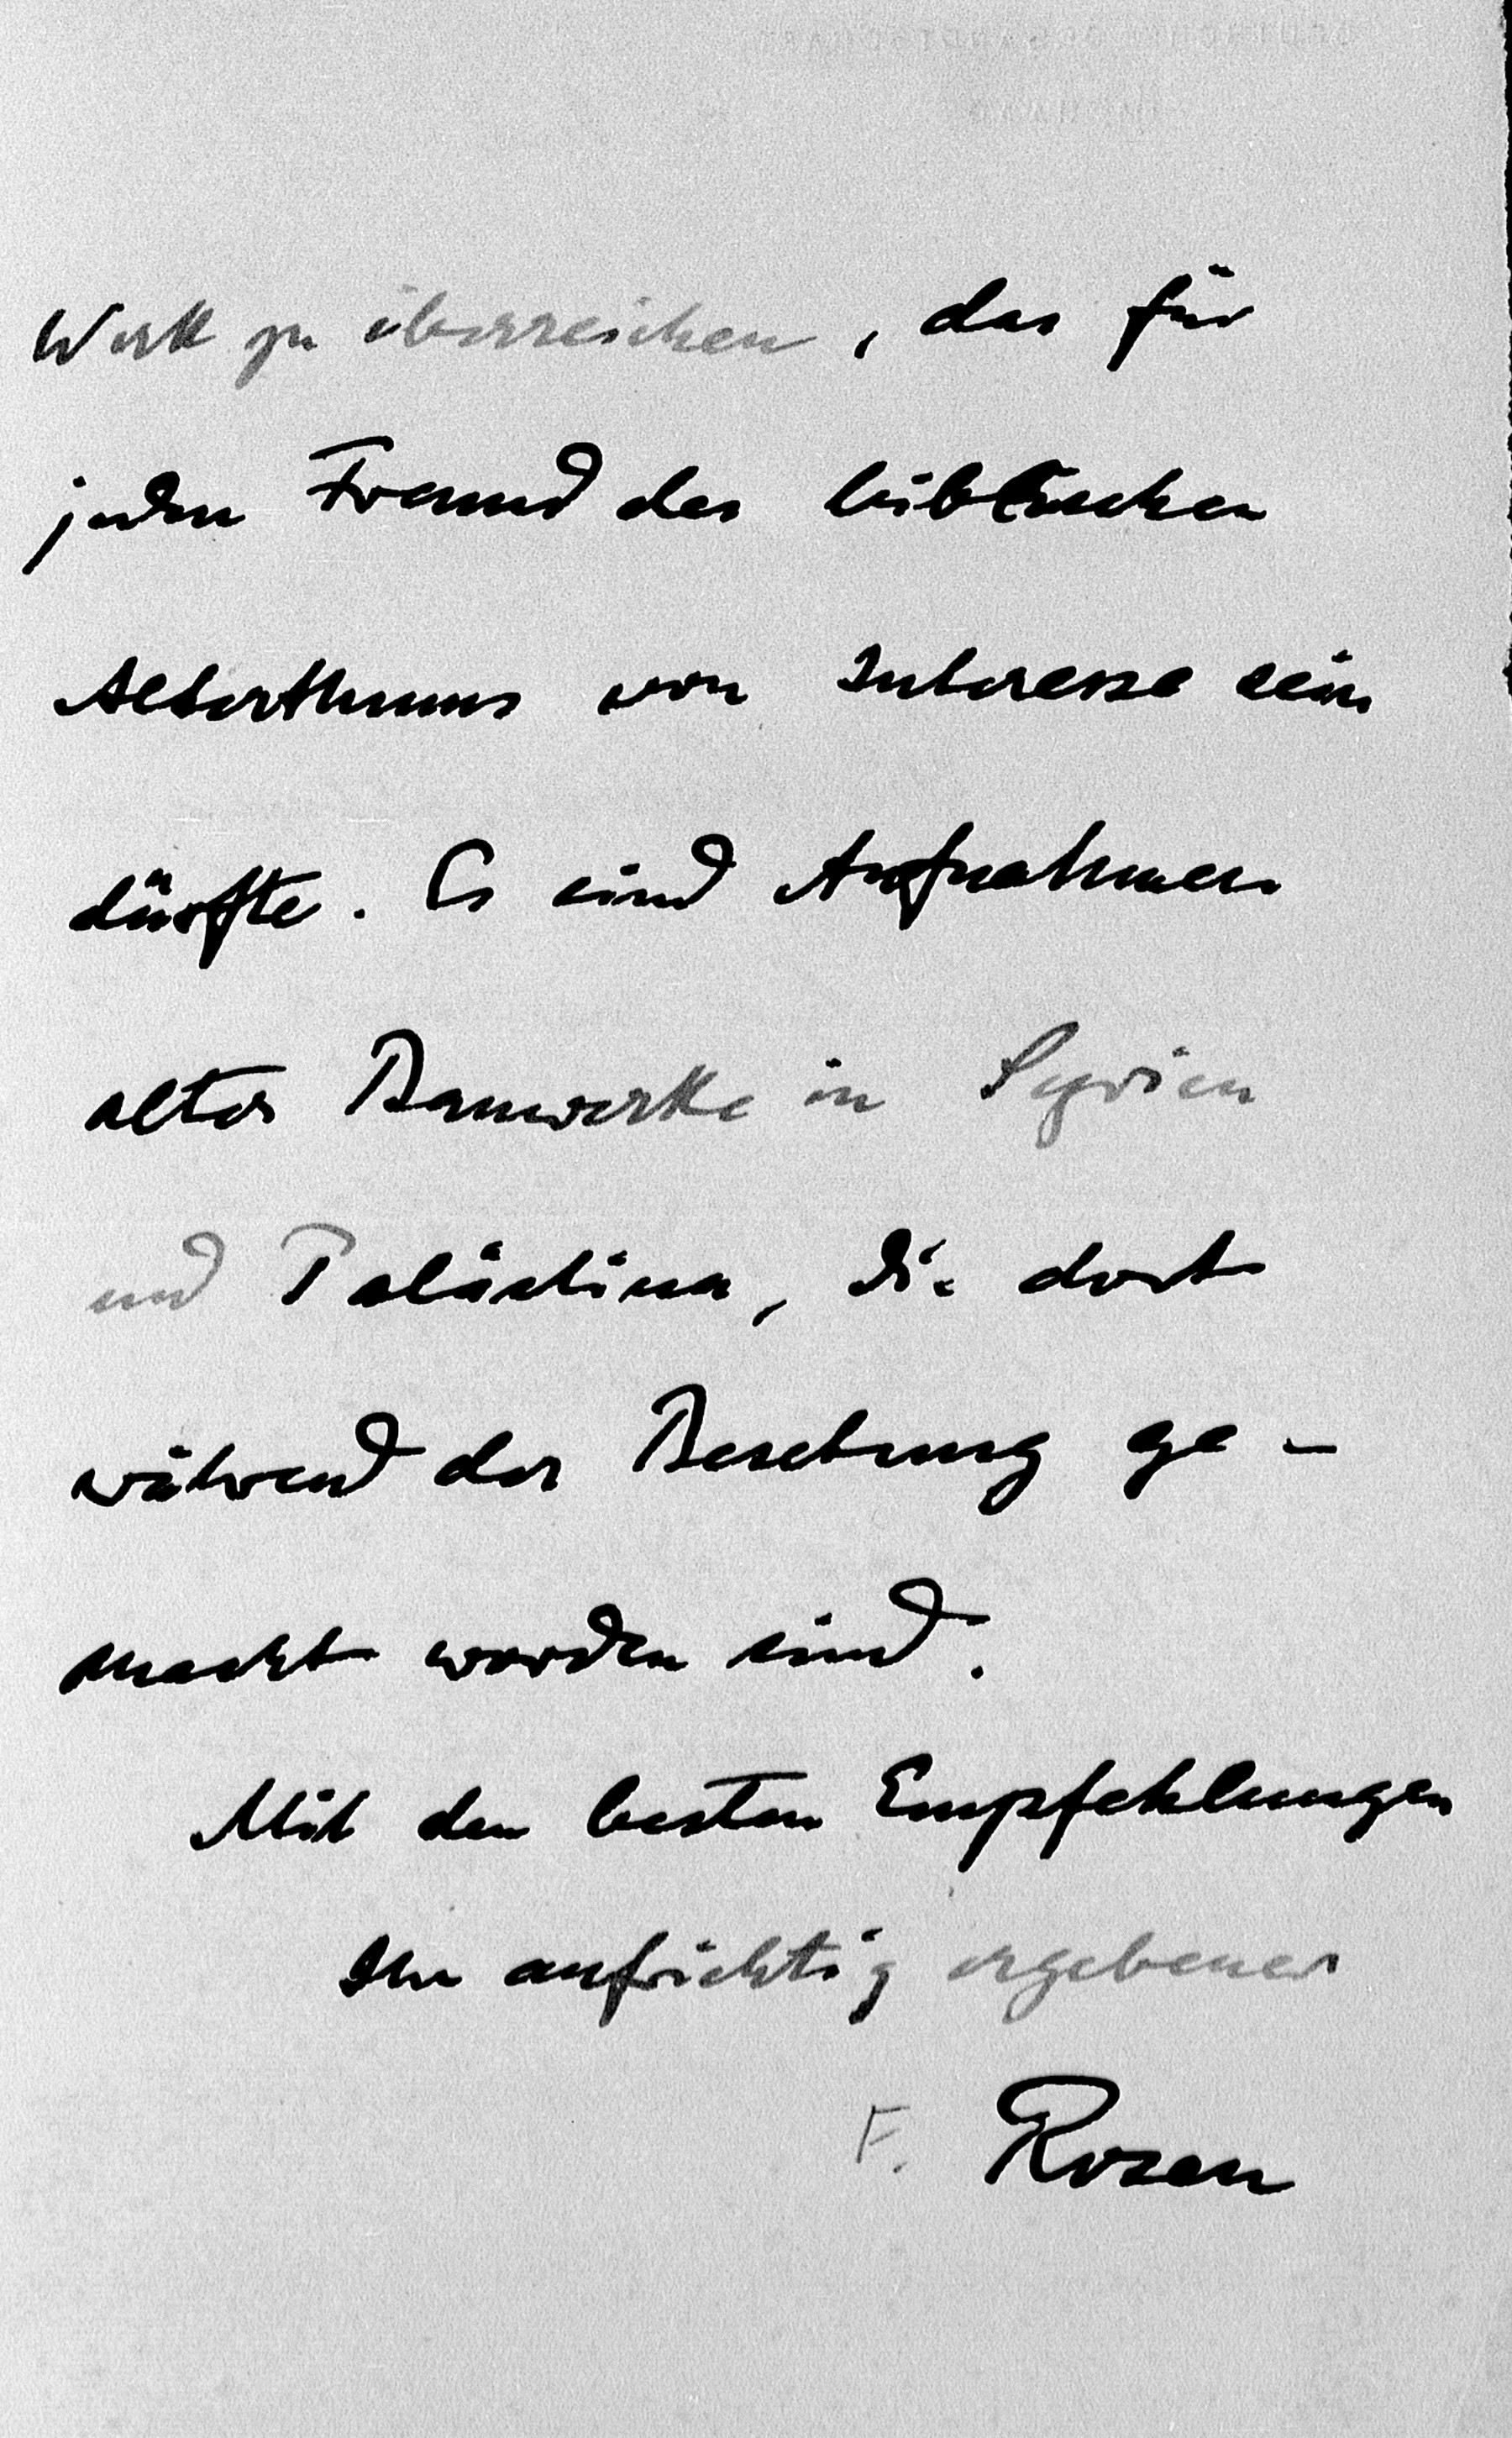 Werk zu überreichen, das für
jeden Freund des biblischen
Alterthums von Interesse sein
dürfte. Es sind Aufnahmen
alter Bauwerke in Syrien
und Palästina, die dort
während der Besetzung ge-
macht worden sind.
Mit den besten Empfehlungen
Ihr aufrichtig ergebener
F. Rosen